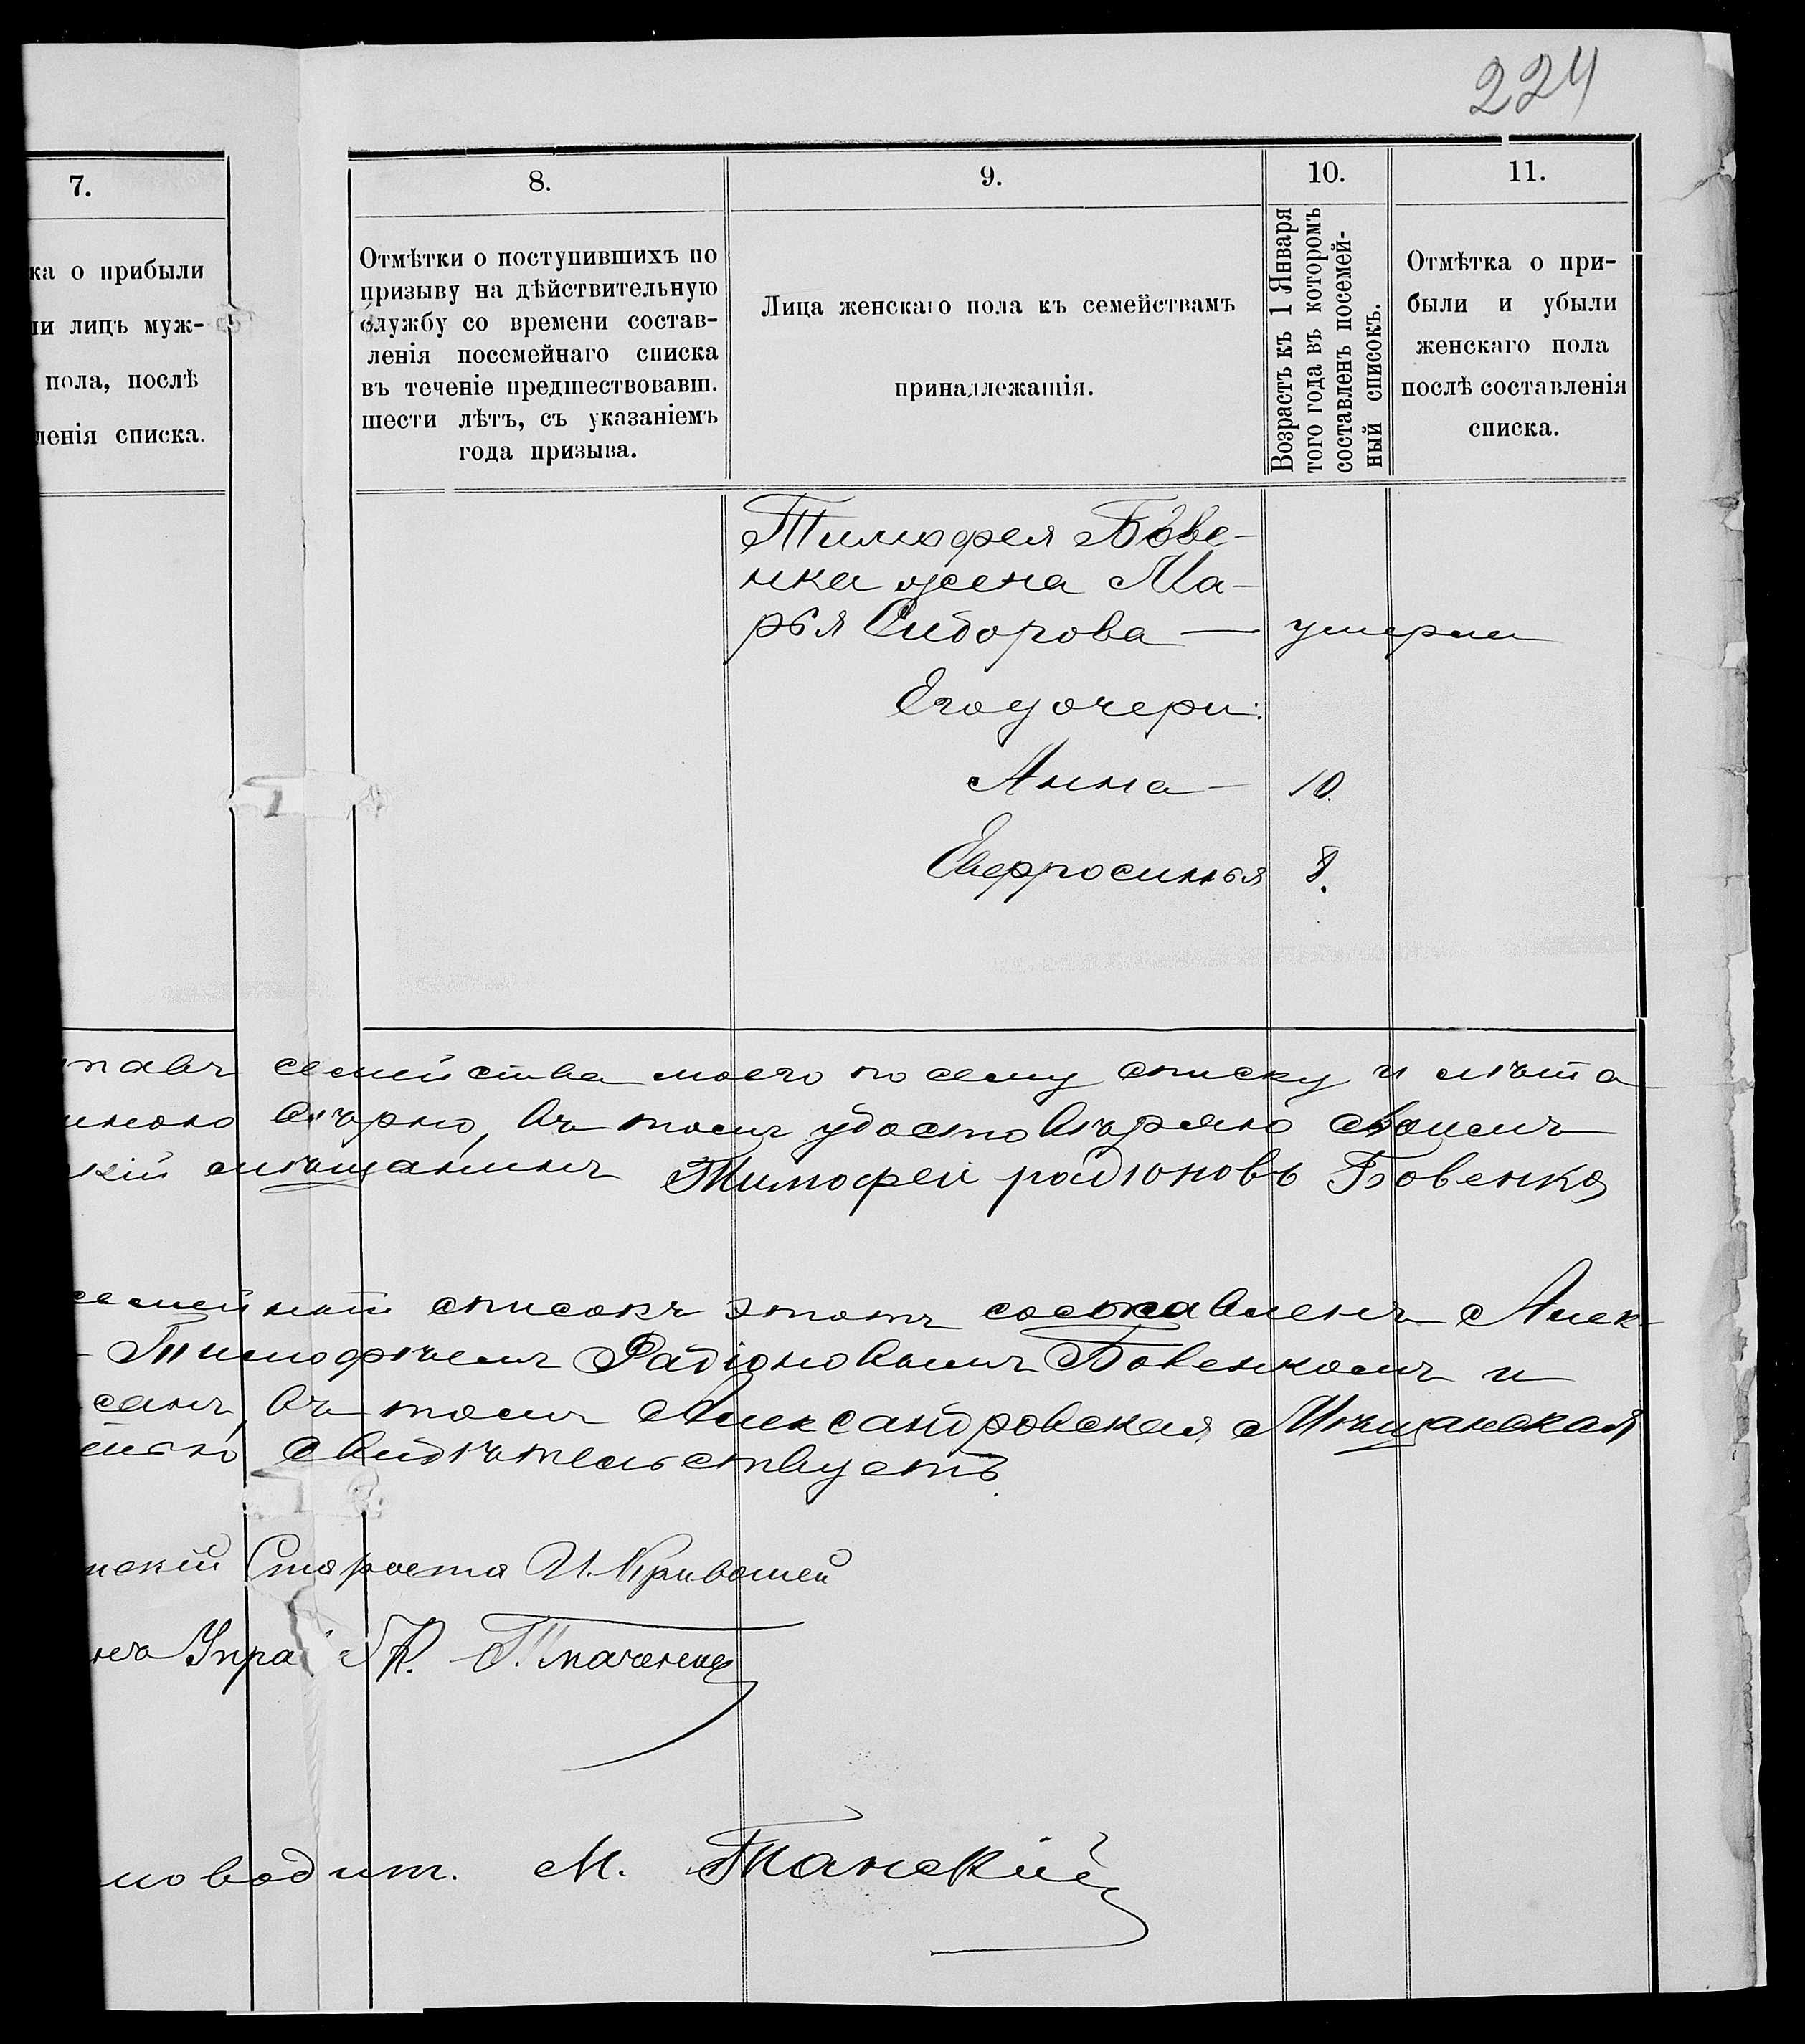 224
7.
ка о прибыли
ли лицъ муж-
пола, послѣ
ленія списка.
8.
Отмѣтки о поступившихъ по
призыву на дѣйствительную
службу со времени состав-
ленія посемейнаго списка
въ теченіе предшествовавш.
шести лѣтъ, съ указаніемъ
года призыва.
9.
Лица женскаго пола къ семействамъ
принадлежащія.
10.
Возрастъ къ 1 Января
того года въ которомъ
составленъ посемей-
ный списокъ.
11.
Отмѣтка о при-
были и убыли
женскаго пола
послѣ составленія
списка.
Тимофея Бове-
нка жена Ма-
рья Сидорова — умерла
Его дочери:
Анна — 10.
Евфросинья 8.
тавъ семейства моего по сему списку и лѣта
вѣрно, въ томъ удостовѣряю своимъ
кій мѣщанинъ Тимофей радіоновъ Бовенко
семейный списокъ этотъ составленъ Алек-
Тимофѣемъ Радіоновымъ Бовенкомъ и
санъ, въ томъ Александровская Мѣщанская
свидѣтельствуетъ.
нскій Староста И. Кривошей
Упра К. Ткаченко
новодит. М. Танскій